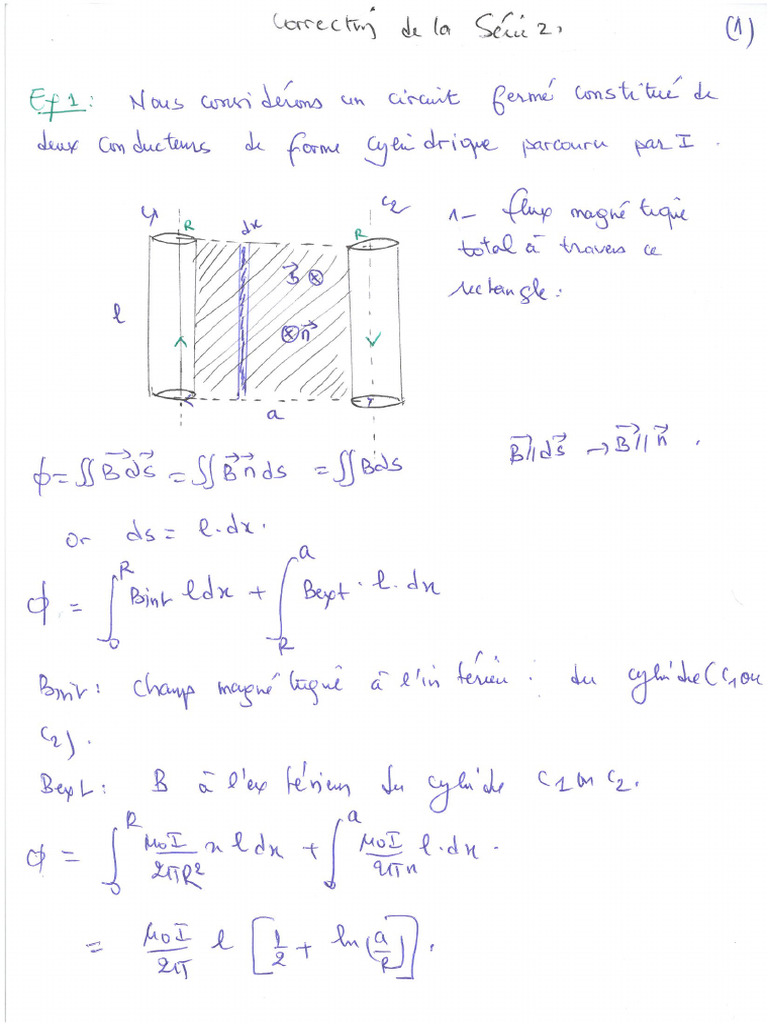 Correction de la Série 2. (1)
Ex 1: Nous considérons un circuit fermé constitué de
deux conducteurs de forme cylindrique parcouru par I.
C1 C2
R dx R
1- flux magnétique
total à travers ce
rectangle:
B⃗ ⊗
l
⊗ n⃗
a
ϕ = ∬ B⃗ ds⃗ = ∬ B⃗ n⃗ ds = ∬ B ds B⃗ // ds⃗ → B⃗ // n⃗ .
or ds = l.dx.
ϕ = ∫₀ᴿ Bint l dx + ∫_R^a Bext . l. dx
Bint: champ magnétique à l'intérieur du cylindre (C1 ou
C2).
Bext: B à l'extérieur du cylindre C1 ou C2.
ϕ = ∫₀ᴿ μ₀I/2πR² x l dx + ∫₀^a μ₀I/2πx l.dx.
= μ₀I/2π l [1/2 + ln(a/R)].